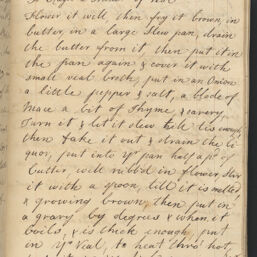 Flower it well, then fry it brown, in
butter, in a large Stew pan, drain
the butter from it, then put it in
the pan again & cover it with
small veal broth, put in an Onion
a little pepper & salt, a blade of
Mace a bit of Thyme & savery
Turn it & let it stew till tis enough
then take it out & drain the li
quor, put into yr pan half a pd of
butter, well rubb'd in flower, stir
it with a spoon, till it is melted
& growing brown, then put in
a gravy by degrees & when it
boils, & is thick enough, put
in yr Veal, to heat thro' hot,